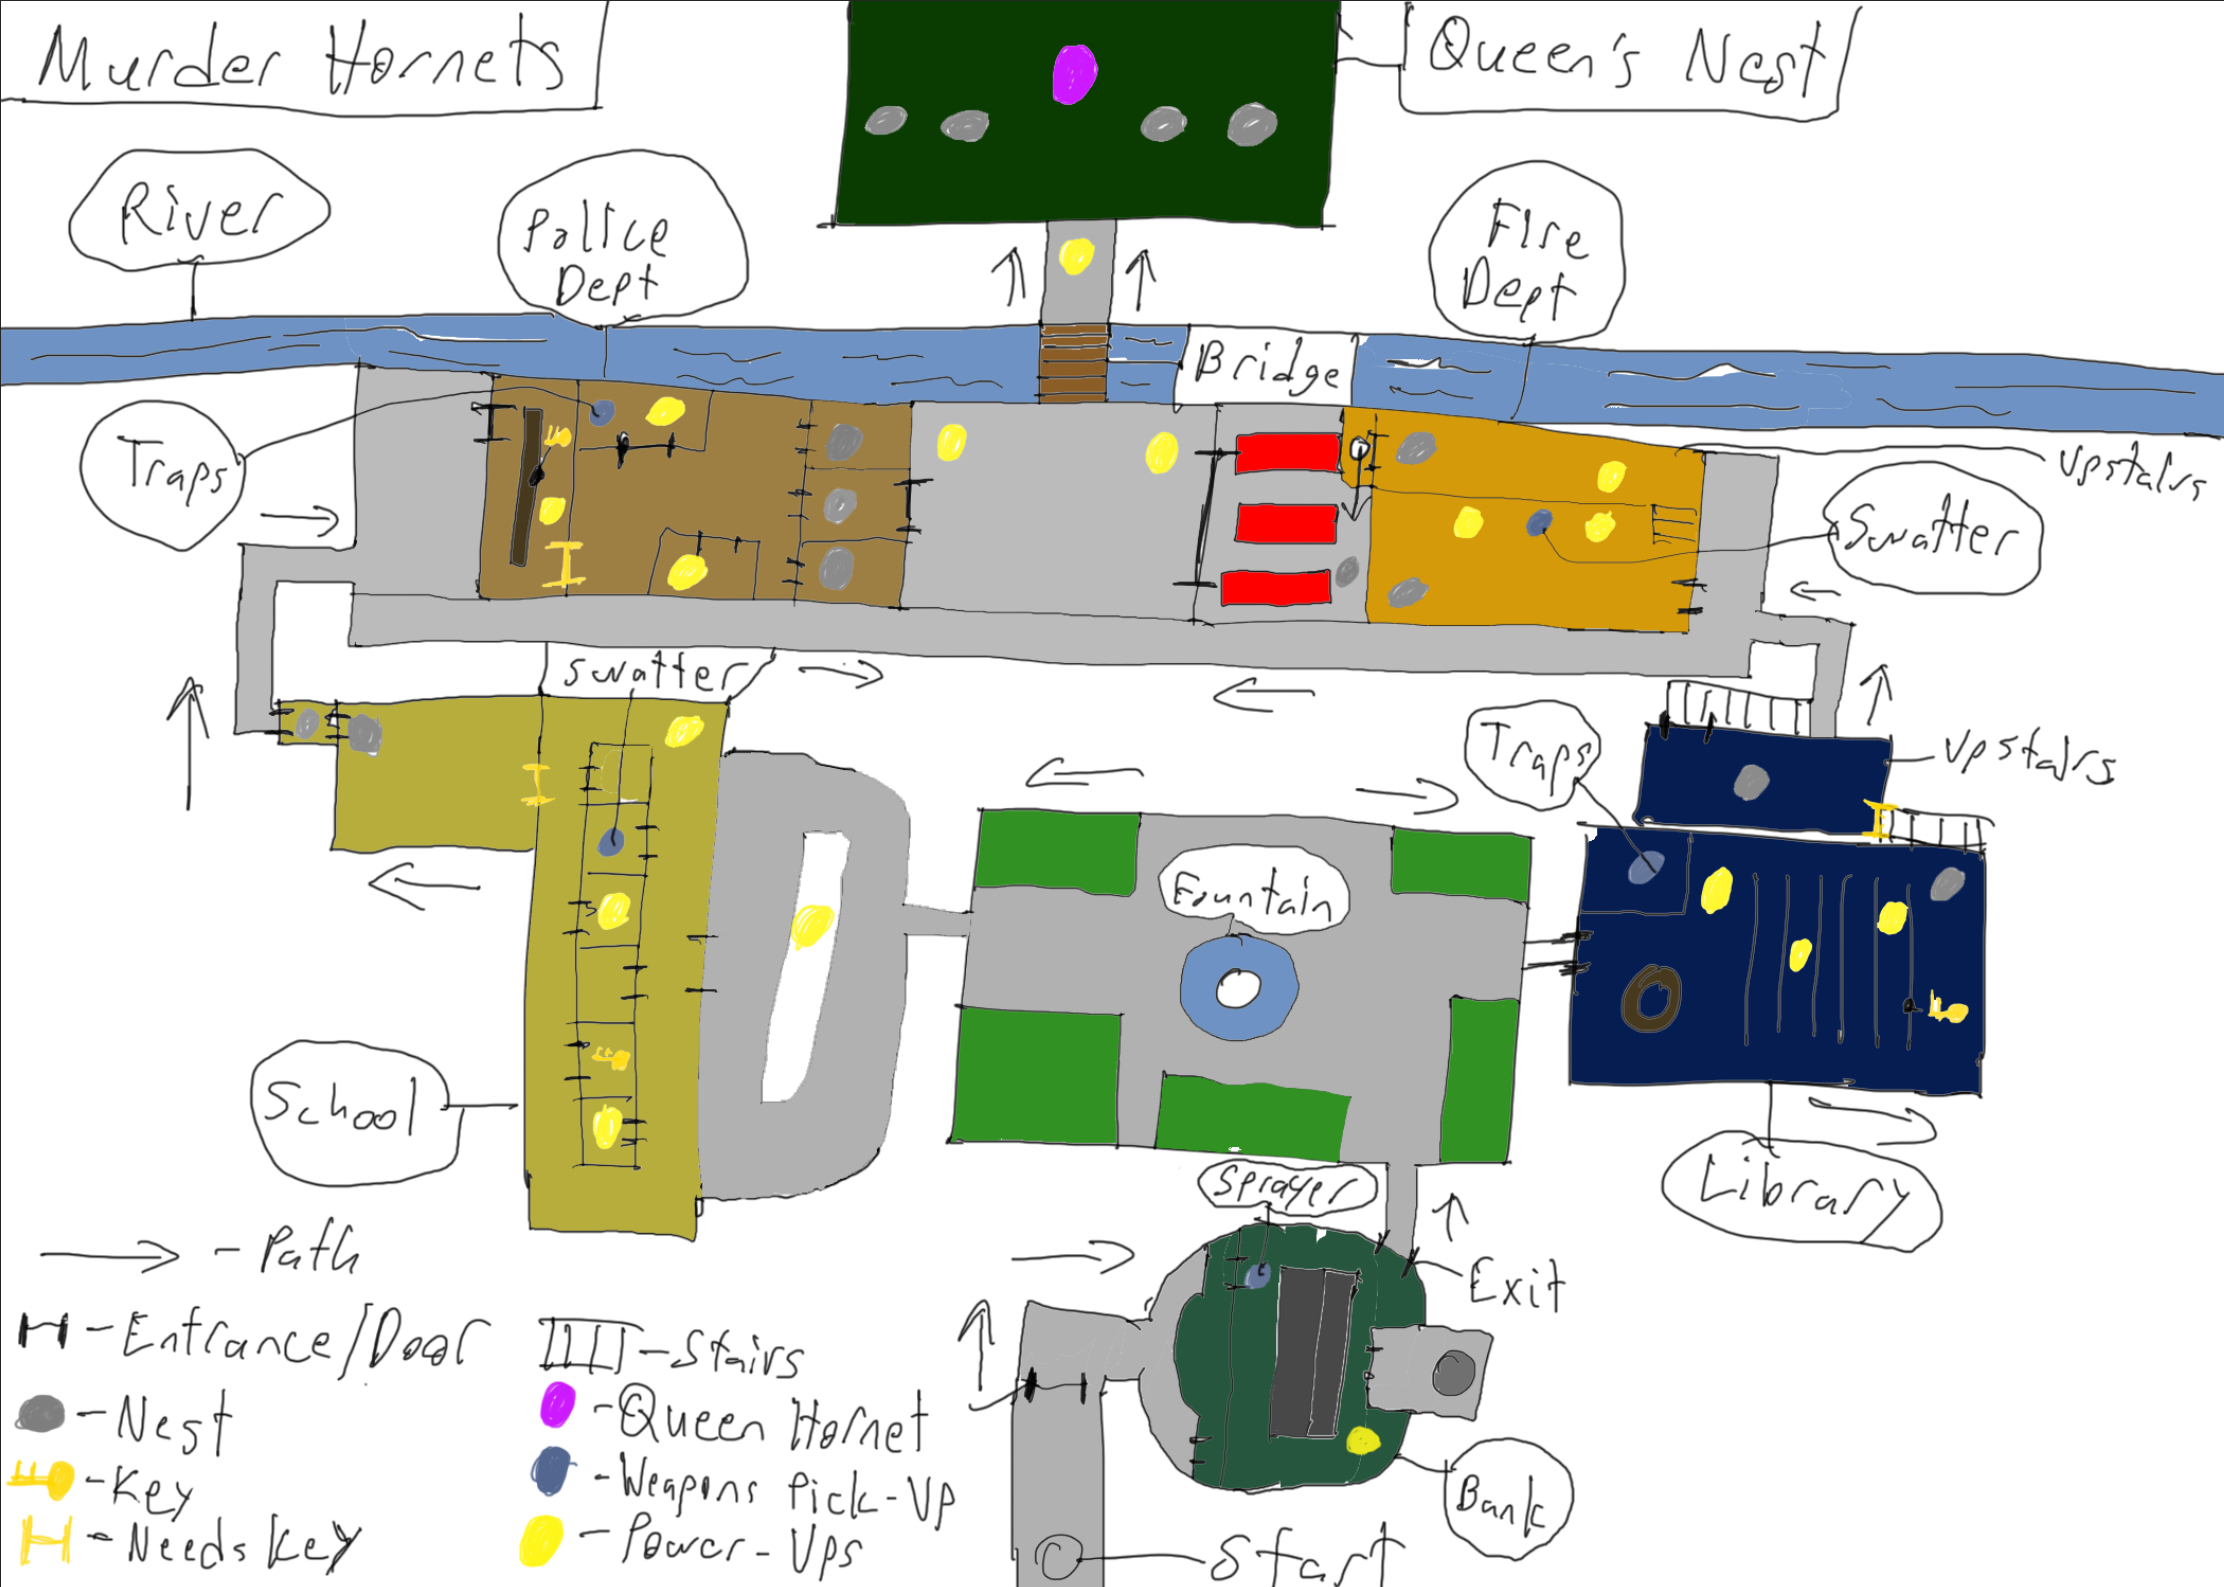 Murder Hornets
Queen's Nest
River
Police
Dept
Fire
Dept
Bridge
Traps
Upstairs
Swatter
Swatter
Traps
Upstairs
Fountain
School
Sprayer
Library
Exit
Bank
Start
- Path
- Entrance/Door
- Nest
- Key
- Needs Key
- Stairs
- Queen Hornet
- Weapons Pick-Up
- Power-Ups